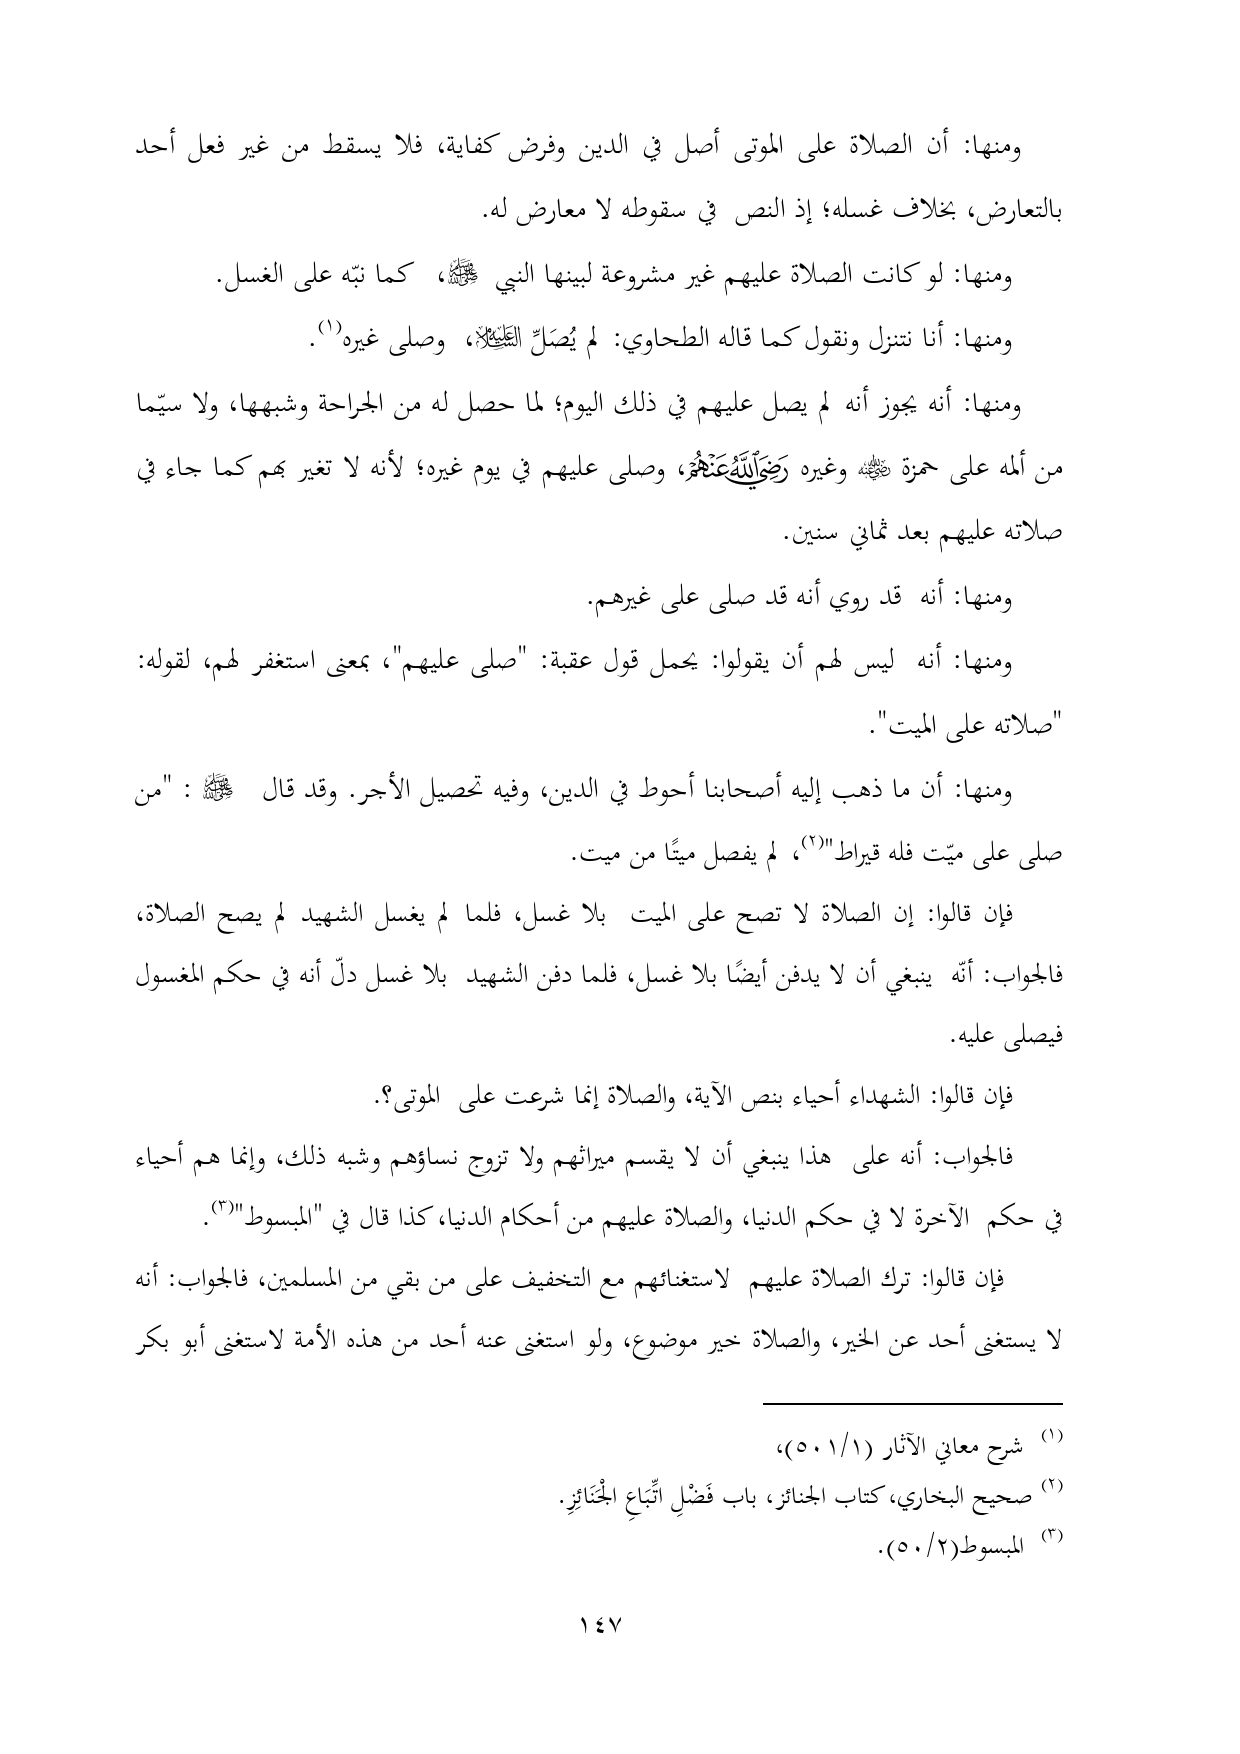 ومنها: أن الصلاة على الموتى أصل في الدين وفرض كفاية، فلا يسقط من غير فعل أحد
بالتعارض، بخلاف غسله؛ إذ النص في سقوطه لا معارض له.
ومنها: لو كانت الصلاة عليهم غير مشروعة لبينها النبي ﷺ، كما نبّه على الغسل.
ومنها: أنا نتنزل ونقول كما قاله الطحاوي: لم يُصَلِّ عليه السلام، وصلى غيره(١).
ومنها: أنه يجوز أنه لم يصل عليهم في ذلك اليوم؛ لما حصل له من الجراحة وشبهها، ولا سيّما
من ألمه على حمزة رضي الله عنه وغيره رَضِيَ اللَّهُ عَنْهُمْ، وصلى عليهم في يوم غيره؛ لأنه لا تغير بهم كما جاء في
صلاته عليهم بعد ثماني سنين.
ومنها: أنه قد روي أنه قد صلى على غيرهم.
ومنها: أنه ليس لهم أن يقولوا: يحمل قول عقبة: "صلى عليهم"، بمعنى استغفر لهم، لقوله:
"صلاته على الميت".
ومنها: أن ما ذهب إليه أصحابنا أحوط في الدين، وفيه تحصيل الأجر. وقد قال ﷺ : "من
صلى على ميّت فله قيراط"(٢)، لم يفصل ميتًا من ميت.
فإن قالوا: إن الصلاة لا تصح على الميت بلا غسل، فلما لم يغسل الشهيد لم يصح الصلاة،
فالجواب: أنّه ينبغي أن لا يدفن أيضًا بلا غسل، فلما دفن الشهيد بلا غسل دلّ أنه في حكم المغسول
فيصلى عليه.
فإن قالوا: الشهداء أحياء بنص الآية، والصلاة إنما شرعت على الموتى؟.
فالجواب: أنه على هذا ينبغي أن لا يقسم ميراثهم ولا تزوج نساؤهم وشبه ذلك، وإنما هم أحياء
في حكم الآخرة لا في حكم الدنيا، والصلاة عليهم من أحكام الدنيا، كذا قال في "المبسوط"(٣).
فإن قالوا: ترك الصلاة عليهم لاستغنائهم مع التخفيف على من بقي من المسلمين، فالجواب: أنه
لا يستغنى أحد عن الخير، والصلاة خير موضوع، ولو استغنى عنه أحد من هذه الأمة لاستغنى أبو بكر
(١) شرح معاني الآثار (٥٠١/١)،
(٢) صحيح البخاري، كتاب الجنائز، باب فَضْلِ اتِّبَاعِ الْجَنَائِزِ.
(٣) المبسوط(٥٠/٢).
١٤٧